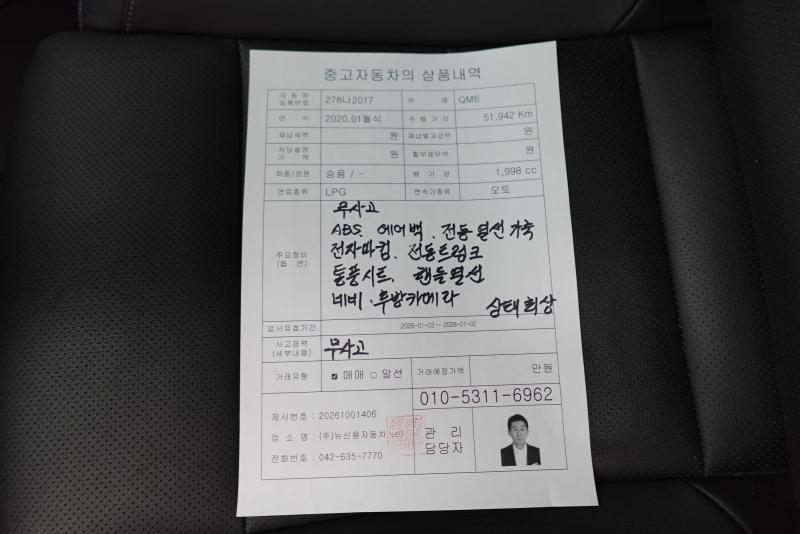 중고자동차의 상품내역
자동차등록번호 278나2017 차 명 QM6
연 식 2020.01월식 주행거리 51,942 Km
체납세액 원 체납벌과금액 원
저당설정가액 원 할부채무액 원
차종/정원 승용 / - 배 기 량 1,998 cc
연료종류 LPG 변속기종류 오토
주요장비(옵 션) 무사고
ABS. 에어백. 전동열선가죽
전자파킹. 전동트렁크
통풍시트. 핸들열선
네비. 후방카메라 상태최상
검사유효기간 2026-01-03 ~ 2028-01-02
사고경력(세부내용) 무사고
거래유형 매매 알선 거래예정가액 만원
010-5311-6962
제시번호 : 20261001406
업 소 명 : (주)뉴신용자동차
전화번호 : 042-635-7770
관 리
담당자